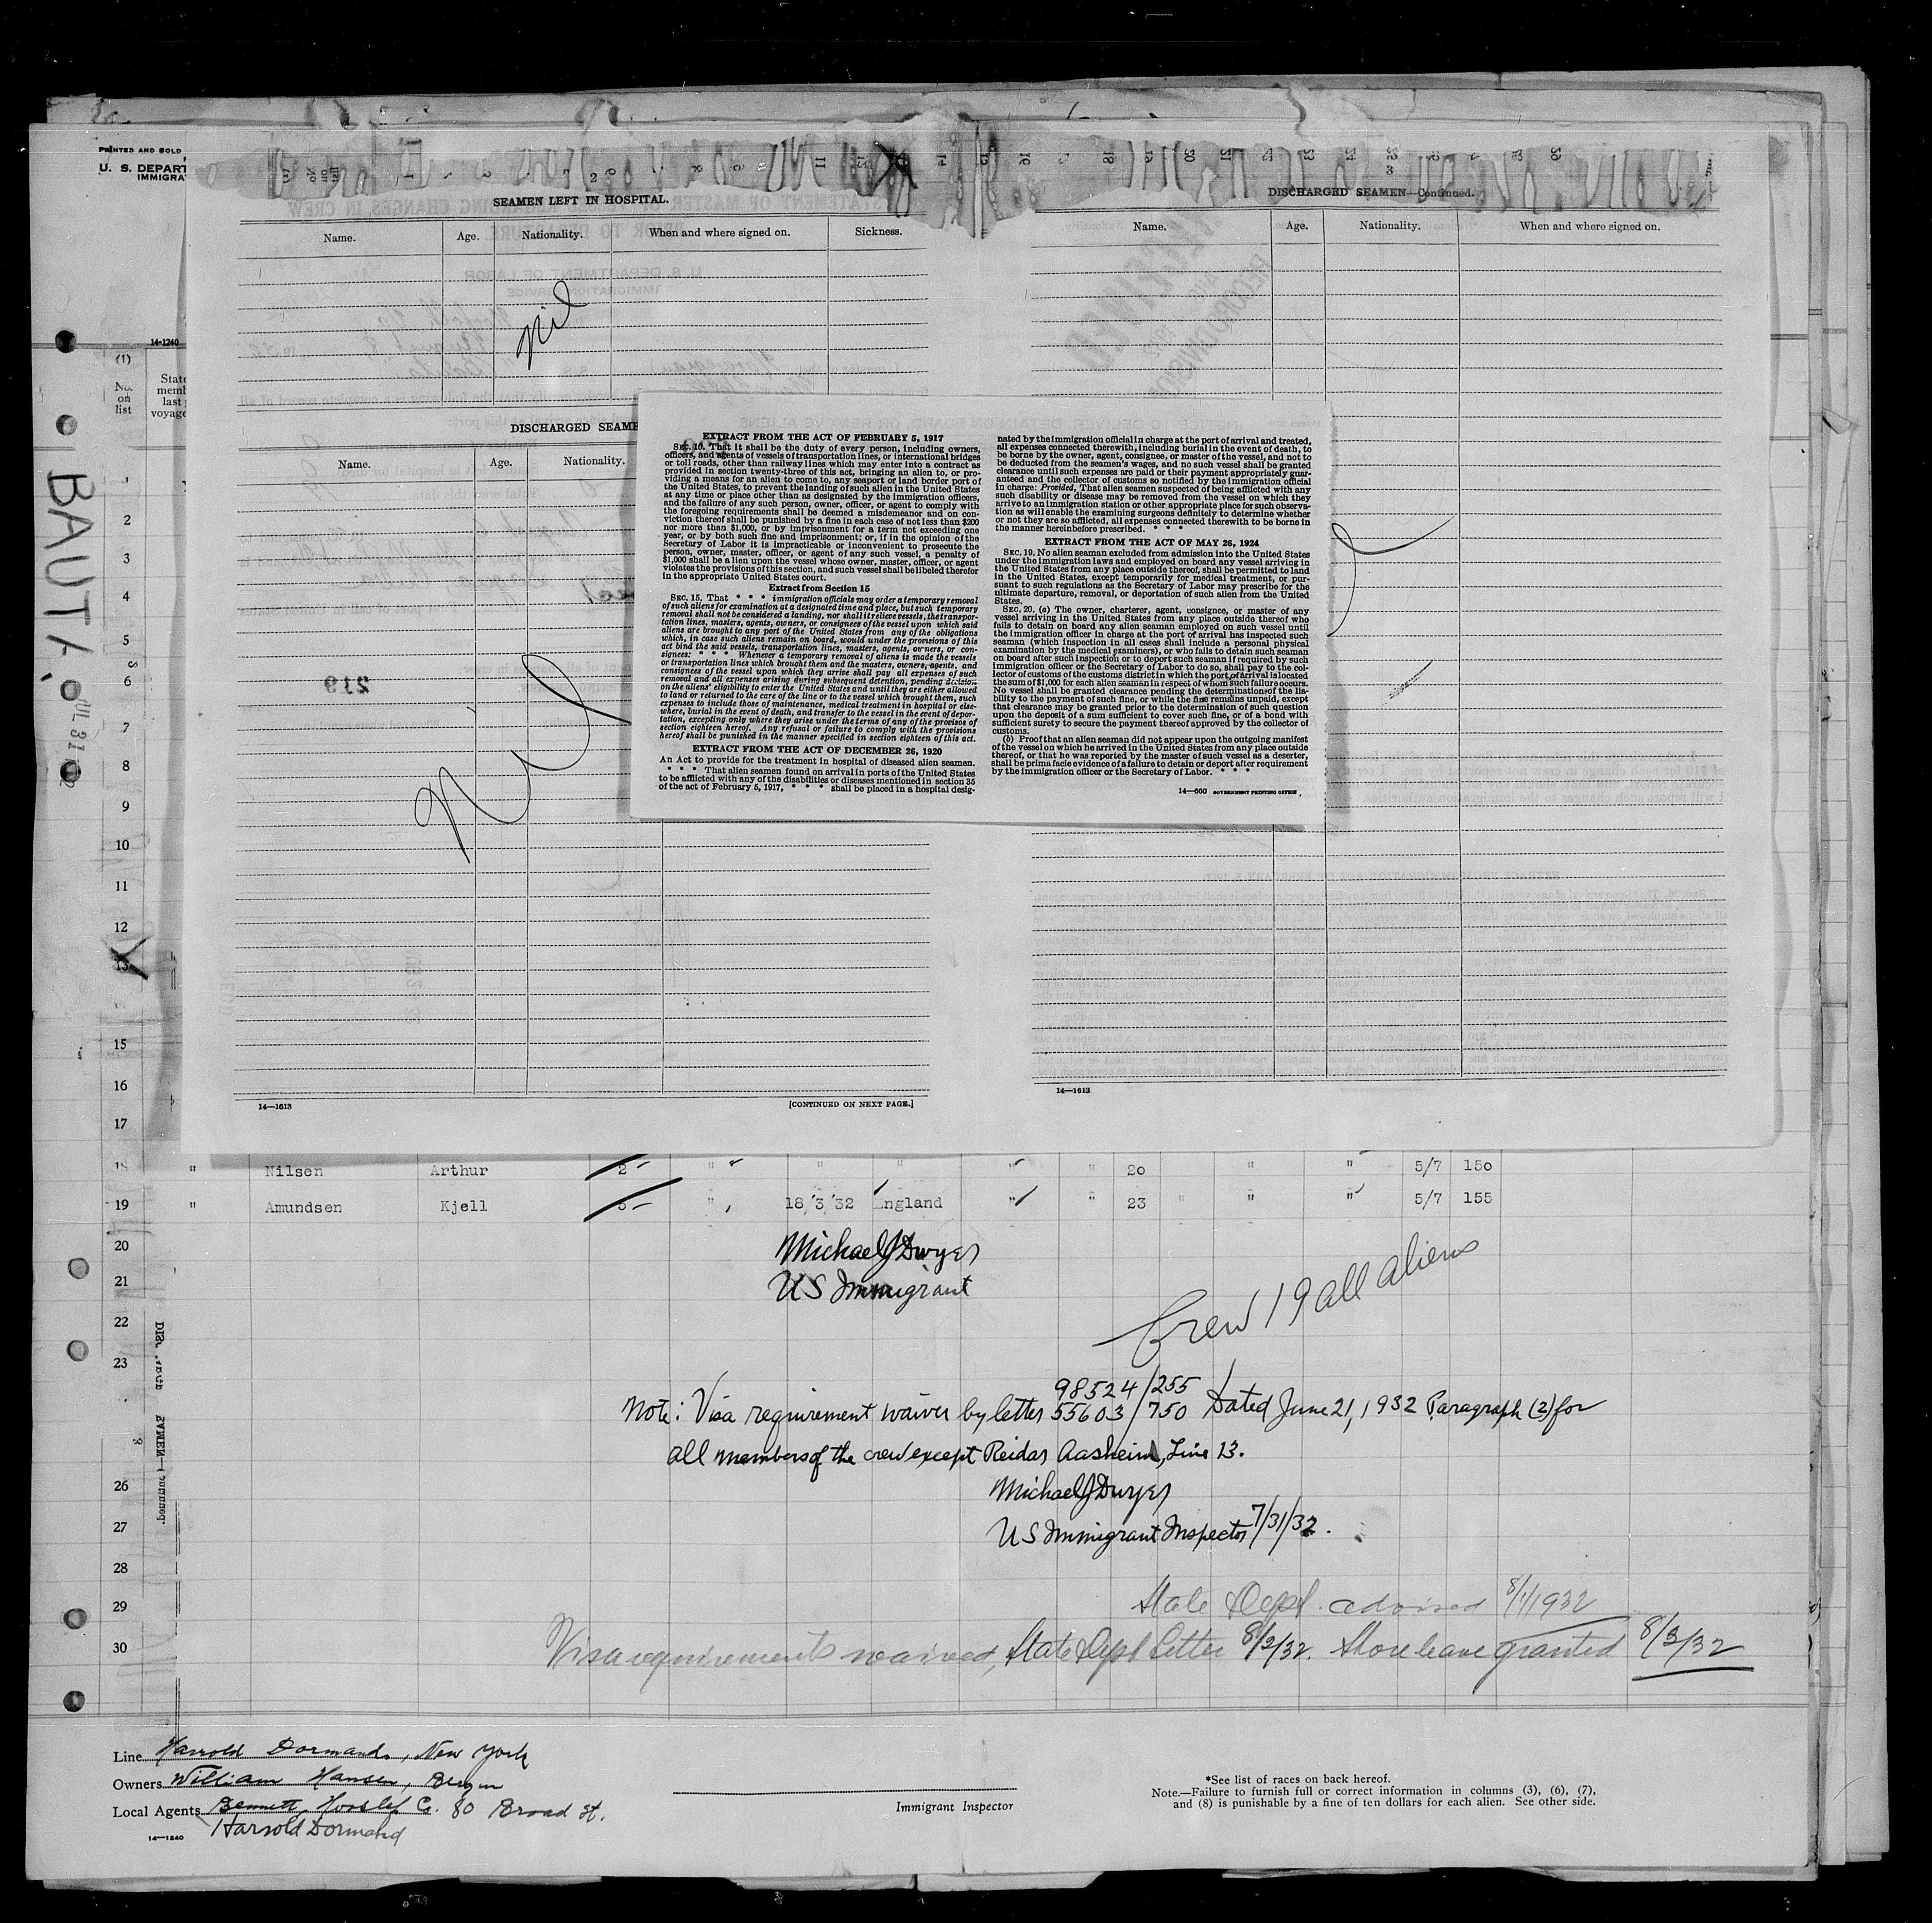 PRINTED AND SOLD
U. S. DEPART
IMMIGRA
14-1240
(1)
No. on list
State
memb
last
voyage
BAUTA
SEAMEN LEFT IN HOSPITAL.
Name. Age. Nationality. When and where signed on. Sickness.
Nil
DISCHARGED SEAME
Name. Age. Nationality.
Nil
219
14—1613
[CONTINUED ON NEXT PAGE.]
DISCHARGED SEAMEN—Continued.
Name. Age. Nationality. When and where signed on.
14—1613
EXTRACT FROM THE ACT OF FEBRUARY 5, 1917
SEC. 10. That it shall be the duty of every person, including owners,
officers, and agents of vessels of transportation lines, or international bridges
or toll roads, other than railway lines which may enter into a contract as
provided in section twenty-three of this act, bringing an alien to, or pro-
viding a means for an alien to come to, any seaport or land border port of
the United States, to prevent the landing of such alien in the United States
at any time or place other than as designated by the immigration officers,
and the failure of any such person, owner, officer, or agent to comply with
the foregoing requirements shall be deemed a misdemeanor and on con-
viction thereof shall be punished by a fine in each case of not less than $200
nor more than $1,000, or by imprisonment for a term not exceeding one
year, or by both such fine and imprisonment; or, if in the opinion of the
Secretary of Labor it is impracticable or inconvenient to prosecute the
person, owner, master, officer, or agent of any such vessel, a penalty of
$1,000 shall be a lien upon the vessel whose owner, master, officer, or agent
violates the provisions of this section, and such vessel shall be libeled therefor
in the appropriate United States court.
Extract from Section 15
SEC. 15. That * * * immigration officials may order a temporary removal
of such aliens for examination at a designated time and place, but such temporary
removal shall not be considered a landing, nor shall it relieve vessels, the transpor-
tation lines, masters, agents, owners, or consignees of the vessel upon which said
aliens are brought to any port of the United States from any of the obligations
which, in case such aliens remain on board, would under the provisions of this
act bind the said vessels, transportation lines, masters, agents, owners, or con-
signees: * * * Whenever a temporary removal of aliens is made the vessels
or transportation lines which brought them and the masters, owners, agents, and
consignees of the vessel upon which they arrive shall pay all expenses of such
removal and all expenses arising during subsequent detention, pending decision
on the aliens' eligibility to enter the United States and until they are either allowed
to land or returned to the care of the line or to the vessel which brought them, such
expenses to include those of maintenance, medical treatment in hospital or else-
where, burial in the event of death, and transfer to the vessel in the event of depor-
tation, excepting only where they arise under the terms of any of the provisos of
section eighteen hereof. Any refusal or failure to comply with the provisions
hereof shall be punished in the manner specified in section eighteen of this act.
EXTRACT FROM THE ACT OF DECEMBER 26, 1920
An Act to provide for the treatment in hospital of diseased alien seamen.
* * * That alien seamen found on arrival in ports of the United States
to be afflicted with any of the disabilities or diseases mentioned in section 35
of the act of February 5, 1917, * * * shall be placed in a hospital desig-
nated by the immigration official in charge at the port of arrival and treated,
all expenses connected therewith, including burial in the event of death, to
be borne by the owner, agent, consignee, or master of the vessel, and not to
be deducted from the seamen's wages, and no such vessel shall be granted
clearance until such expenses are paid or their payment appropriately guar-
anteed and the collector of customs so notified by the immigration official
in charge: Provided, That alien seamen suspected of being afflicted with any
such disability or disease may be removed from the vessel on which they
arrive to an immigration station or other appropriate place for such observa-
tion as will enable the examining surgeons definitely to determine whether
or not they are so afflicted, all expenses connected therewith to be borne in
the manner hereinbefore prescribed. * * *
EXTRACT FROM THE ACT OF MAY 26, 1924
SEC. 19. No alien seaman excluded from admission into the United States
under the immigration laws and employed on board any vessel arriving in
the United States from any place outside thereof, shall be permitted to land
in the United States, except temporarily for medical treatment, or pur-
suant to such regulations as the Secretary of Labor may prescribe for the
ultimate departure, removal, or deportation of such alien from the United
States.
SEC. 20. (a) The owner, charterer, agent, consignee, or master of any
vessel arriving in the United States from any place outside thereof who
fails to detain on board any alien seaman employed on such vessel until
the immigration officer in charge at the port of arrival has inspected such
seaman (which inspection in all cases shall include a personal physical
examination by the medical examiners), or who fails to detain such seaman
on board after such inspection or to deport such seaman if required by such
immigration officer or the Secretary of Labor to do so, shall pay to the col-
lector of customs of the customs district in which the port of arrival is located
the sum of $1,000 for each alien seaman in respect of whom such failure occurs.
No vessel shall be granted clearance pending the determination of the lia-
bility to the payment of such fine, or while the fine remains unpaid, except
that clearance may be granted prior to the determination of such question
upon the deposit of a sum sufficient to cover such fine, or of a bond with
sufficient surety to secure the payment thereof approved by the collector of
customs.
(b) Proof that an alien seaman did not appear upon the outgoing manifest
of the vessel on which he arrived in the United States from any place outside
thereof, or that he was reported by the master of such vessel as a deserter,
shall be prima facie evidence of a failure to detain or deport after requirement
by the immigration officer or the Secretary of Labor. * * *
14—660 GOVERNMENT PRINTING OFFICE
1
2
3
4
5
6
7
8
9
10
11
12
13
15
16
17
" Nilsen Arthur 2 " " " " " 20 " " 5/7 150
19 " Amundsen Kjell 3 " 18/3/32 England " " 23 " " " 5/7 155
20
Michael J Dwyer
21
US Immigrant
22
Crew 19 all aliens
23
98524/255
Note: Visa requirement waiver by letter 55603/750 Dated June 21, 1932 Paragraph (2) for
all members of the crew except Reidar Aasheim, Line 13.
26
Michael J Dwyer
27
US Immigrant Inspector 7/31/32.
28
29
State Dept. advised 8/1/1932
30
Visa requirements waived, State Dept letter 8/2/32. Shore leave granted 8/3/32
Line Harrold Dormand, New York
Owners William Hansen, Bergen
Local Agents Bennett, Co. 80 Broad St.
Harrold Dormand
14—1240
Immigrant Inspector
*See list of races on back hereof.
Note.—Failure to furnish full or correct information in columns (3), (6), (7),
and (8) is punishable by a fine of ten dollars for each alien. See other side.